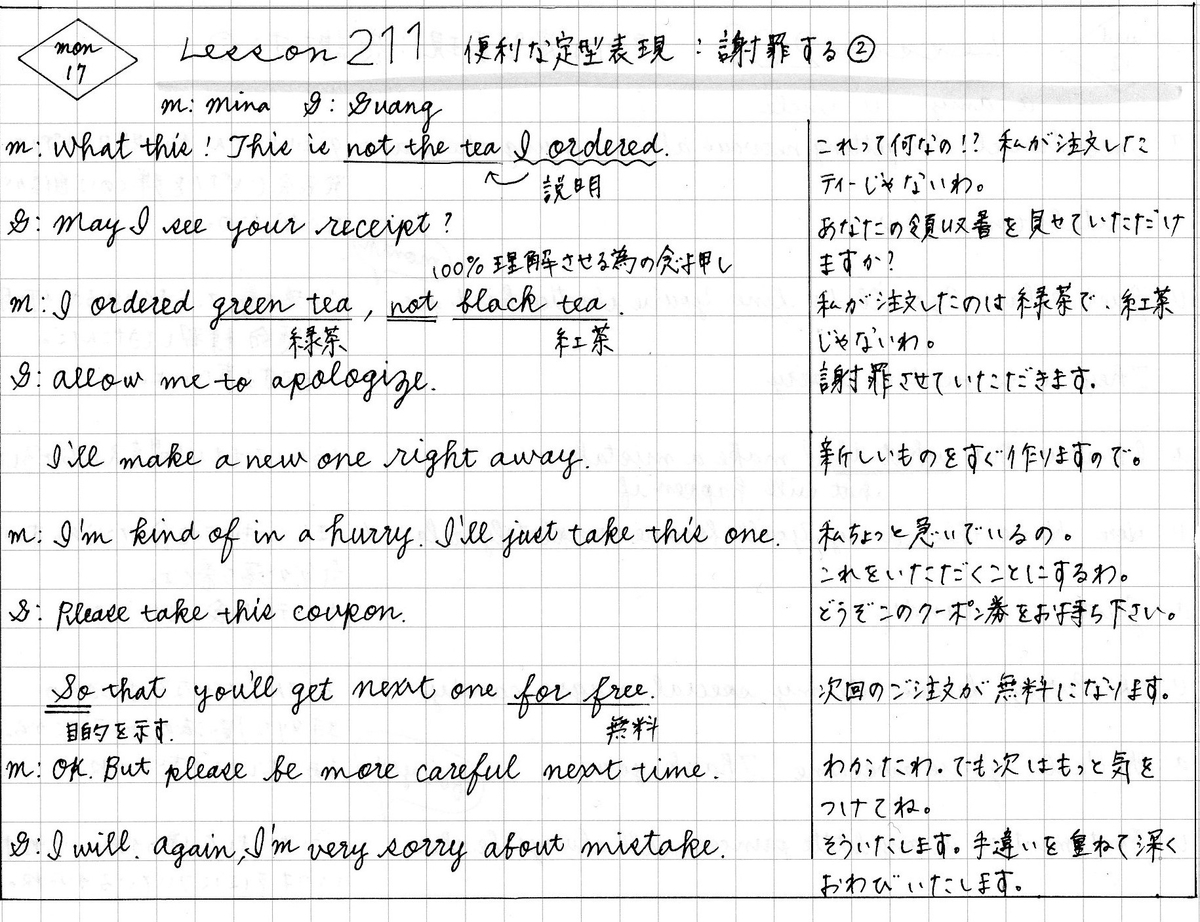 mon
17
Lesson 211 便利な定型表現：謝罪する②
m: mina G: Guang
m: What this! This is not the tea I ordered.
これって何なの!? 私が注文した
説明
ティーじゃないわ。
G: May I see your receipt?
あなたの領収書を見せていただけ
ますか?
100% 理解させる為の念押し
m: I ordered green tea, not black tea.
私が注文したのは緑茶で、紅茶
緑茶
紅茶
じゃないわ。
G: allow me to apologize.
謝罪させていただきます。
I'll make a new one right away.
新しいものをすぐ作りますので。
m: I'm kind of in a hurry. I'll just take this one.
私ちょっと急いでいるの。
これをいただくことにするわ。
G: Please take this coupon.
どうぞこのクーポン券をお持ち下さい。
So that you'll get next one for free.
次回のご注文が無料になります。
目的を示す.
無料
m: OK. But please be more careful next time.
わかったわ。でも次はもっと気を
つけてね。
G: I will. again, I'm very sorry about mistake.
そういたします。手違いを重ねて深く
おわびいたします。